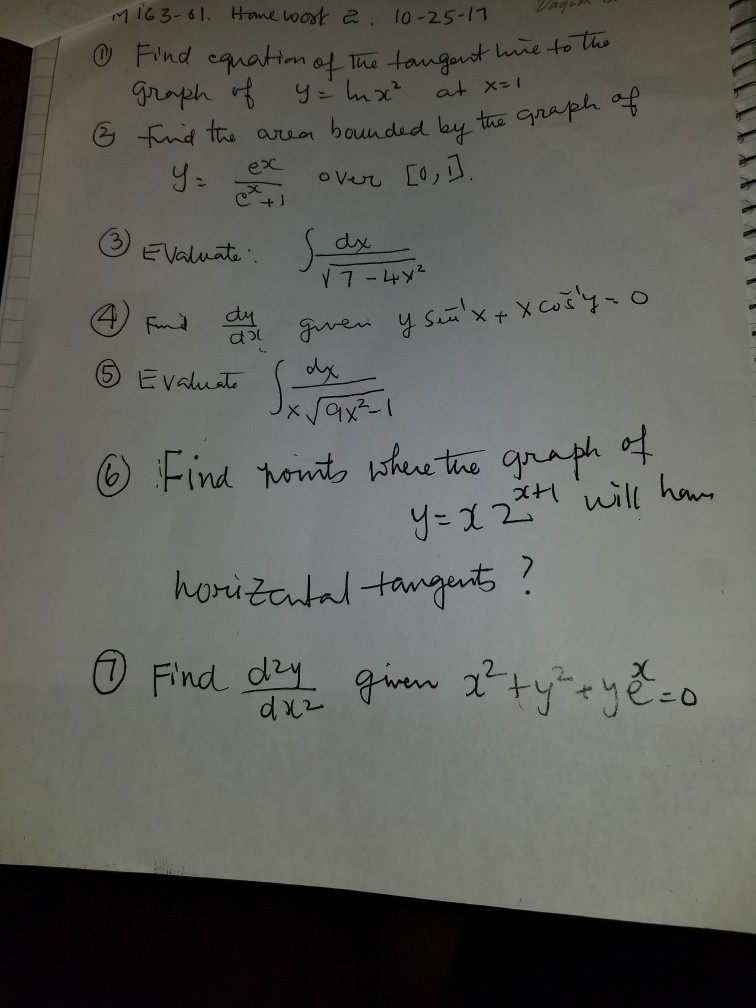 M 163-61. Homework 2. 10-25-17
① Find equation of the tangent line to the
graph of y = ln x² at x=1
② Find the area bounded by the graph of
y = eˣ/(eˣ+1) over [0,1].
③ Evaluate: ∫ dx/√(7-4x²)
④ Find dy/dx given y sin⁻¹x + x cos⁻¹y = 0
⑤ Evaluate ∫ dx/(x√(9x²-1))
⑥ Find points where the graph of
y = x 2ˣ⁺¹ will have
horizental tangents?
⑦ Find d²y/dx² given x²+y²+yeˣ=0